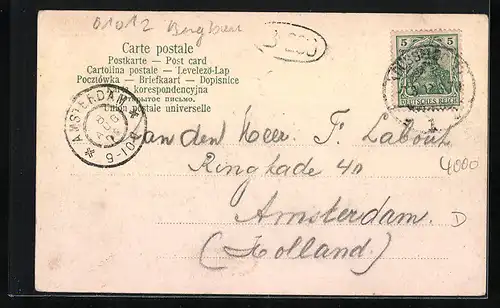 01012
Carte postale
Postkarte – Post card
Cartolina postale – Levelező-Lap
Pocztówka – Briefkaart – Dopisnice
korespondencyjna
Union postale universelle
5 5
DEUTSCHES REICH
AMSTERDAM
9-10V
van den Heer F. Labout
Ringkade 40
Amsterdam.
(Holland.)
4000
D